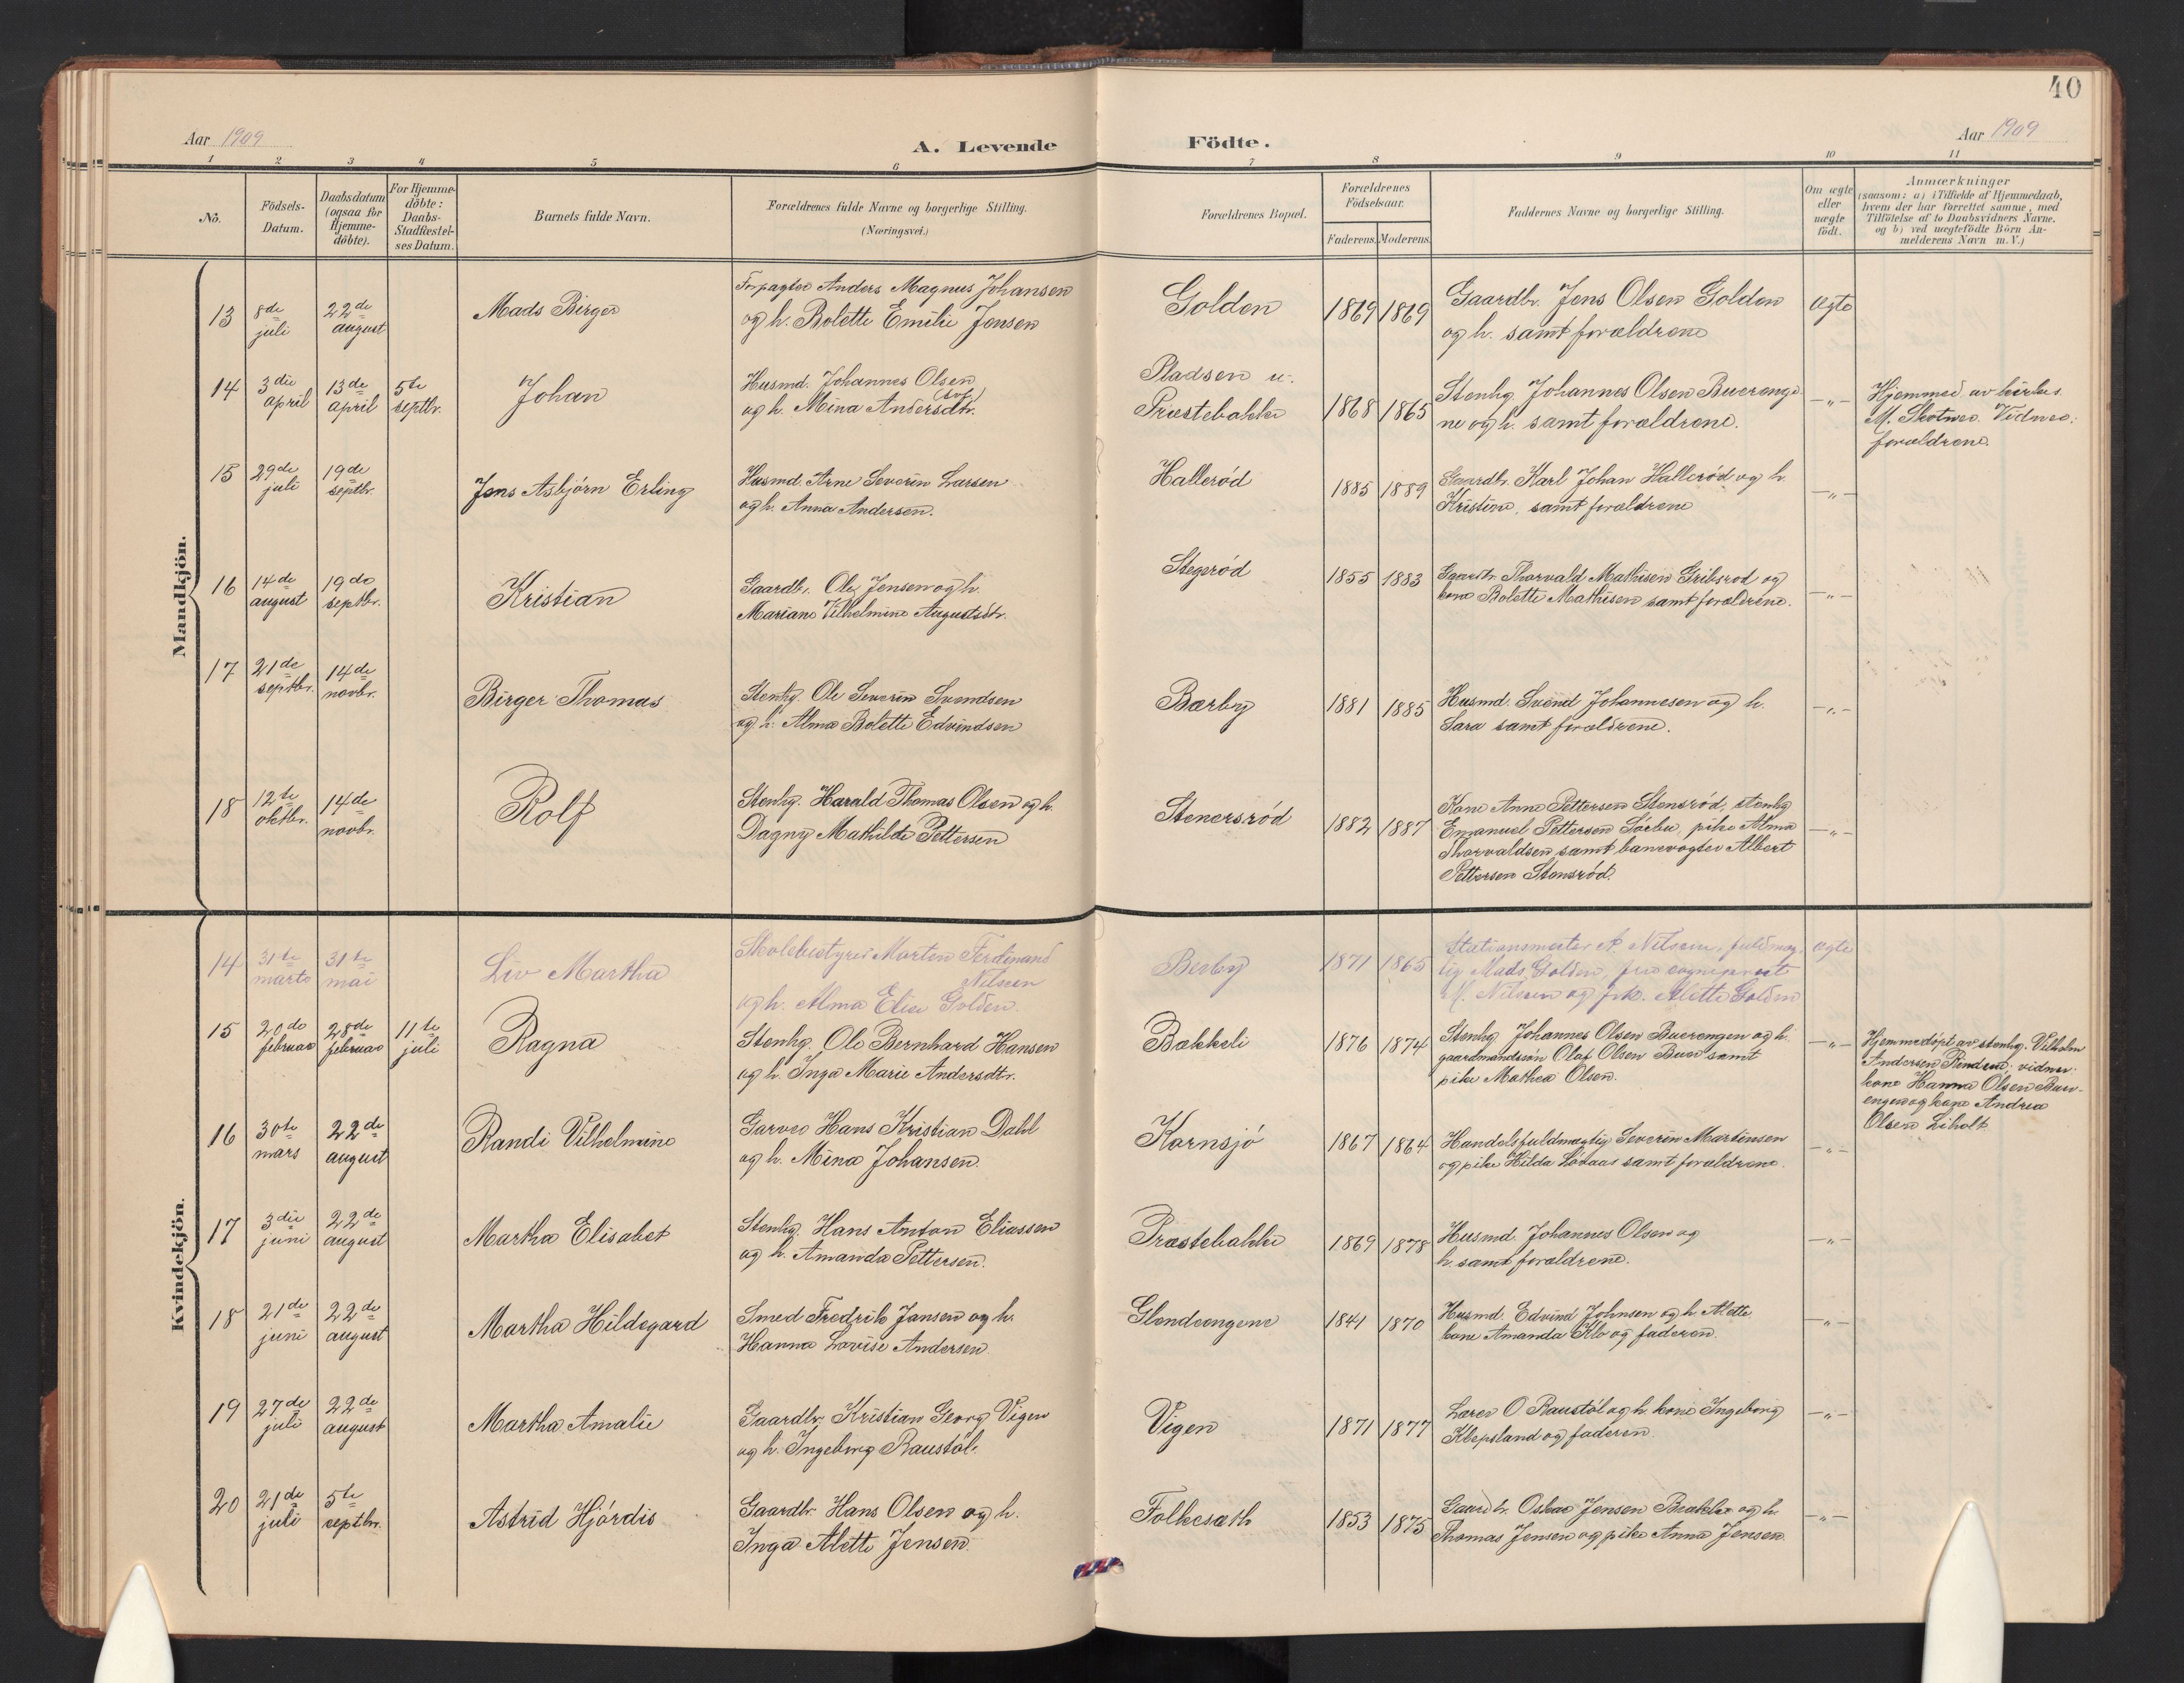 40
Aar 1909
A. Levende Födte.
Aar 1909
1 2 3 4 5 6 7 8 9 10 11
No.
Födsels-
Datum.
Daabsdatum
(ogsaa for
Hjemme-
döbte).
For Hjemme-
döbte:
Daabs-
Stadfæstel-
ses Datum.
Barnets fulde Navn.
Forældrenes fulde Navne og borgerlige Stilling.
(Næringsvei.)
Forældrenes Bopæl.
Forældrenes
Födselsaar.
Faderens. Moderens.
Faddernes Navne og borgerlige Stilling.
Om ægte
eller
uægte
födt.
Anmærkninger
(saasom: a) i Tilfælde af Hjemmedaab,
hvem der har forrettet samme, med
Tilföielse af to Daabsvidners Navne.
og b) ved uægtefödte Börn An-
melderens Navn m. V.)
Mandkjön.
13
8de
juli
22de
august
Mads Birger
Forpagter Anders Magnus Johansen
og h. Bolette Emilie Jensen
Golden
1869 1869
Gaardbr. Jens Olsen Golden
og h. samt forældrene
Ægte
14
3die
april
13de
april
5te
septbr.
Johan
Husmd. Johannes Olsen
og h. Mina Andersdtr.
Pladsen u.
Præstebakke
1868 1865
Stenhg. Johannes Olsen Buerenge
ne og h. samt forældrene.
-"-
Hjemmed. av kirkes.
M. Skotnes. Vidner:
forældrene.
15
29de
juli
19de
septbr.
Jens Asbjörn Erling
Husmd. Arne Severin Larsen
og h. Anna Andersen.
Halleröd
1885 1889
Gaardbr. Karl Johan Halleröd og h.
Kristine, samt forældrene
-"-
16
14de
august
19de
septbr.
Kristian
Gaardbr. Ole Jensen og h.
Mariane Vilhelmine Augustsdtr.
Stegeröd
1855 1883
Gaardbr. Thorvald Mathisen Gribsrod og
kone Bolette Mathisen samt forældrene.
-"-
17
21de
septbr.
14de
novbr.
Birger Thomas
Stenhg. Ole Severin Svendsen
og h. Alma Bolette Edvindsen
Bærby
1881 1885
Husmd. Svend Johannesen og h.
Sara samt forældrene.
-"-
18
12te
oktbr.
14de
novbr.
Rolf
Stenhg. Harald Thomas Olsen og h.
Dagny Mathilde Pettersen
Stenersröd
1882 1887
Kone Anne Pettersen Stensröd, stenhg.
Emanuel Pettersen Sörbu, pike Alma
Thorvaldsen samt banevogter Albert
Pettersen Stensröd.
-"-
Kvindekjön.
14
31te
marts
31te
mai
Liv Martha
Skolebestyrer Morten Ferdinand
Nilsen
og h. Alma Elise Golden.
Berby
1871 1865
Stationsmester A. Nilsen, fuldmæg-
tig Mads Golden, fru sogneprest
M. Nilsen og frk. Alette Golden
Ægte
15
20de
februar
28de
februar
11te
juli
Ragna
Stenhg. Ole Bernhard Hansen
og h. Inga Marie Andersdtr.
Bakkeli
1876 1874
Stenhg. Johannes Olsen Buerengen og h.
gaardmandssön Olaf Olsen Buer samt
pike Mathea Olsen.
-"-
Hjemmedöpt av stenhg. Vilhelm
Andersen vidner:
kone Hanna Olsen Buer-
engen og kone Andrea
Olsen Liholt
16
30te
mars
22de
august
Randi Vilhelmine
Garver Hans Kristian Dahl
og h. Mina Johansen.
Kornsjö
1867 1864
Handelsfuldmægtig Severin Martinsen
og pike Hilda Lövaas samt forældrene.
-"-
17
3die
juni
22de
august
Martha Elisabet
Stenhg. Hans Anton Eliassen
og h. Amanda Pettersen.
Præstebakke
1869 1878
Husmd. Johannes Olsen og
h. samt forældrene.
-"-
18
21de
juni
22de
august
Martha Hildegard
Smed Fredrik Jansen og h.
Hanna Lovise Andersen
Glendeengene
1841 1870
Husmd. Edvind Johnsen og h. Alette
kone Amanda Klo og faderen.
-"-
19
27de
juli
22de
august
Martha Amalie
Gaardbr. Kristian Georg Vigen
og h. Ingeborg Raustöl.
Vigen
1871 1877
Lærer O. Raustöl og h. kone Ingeborg
Klepsland og faderen.
-"-
20
21de
juli
5te
septbr.
Astrid Hjördis
Gaardbr. Hans Olsen og h.
Inga Alette Jensen.
Folkesæth
1853 1875
Gaardbr. Oskar Jensen Brække og h.
Thomas Jensen og pike Anna Jensen.
-"-